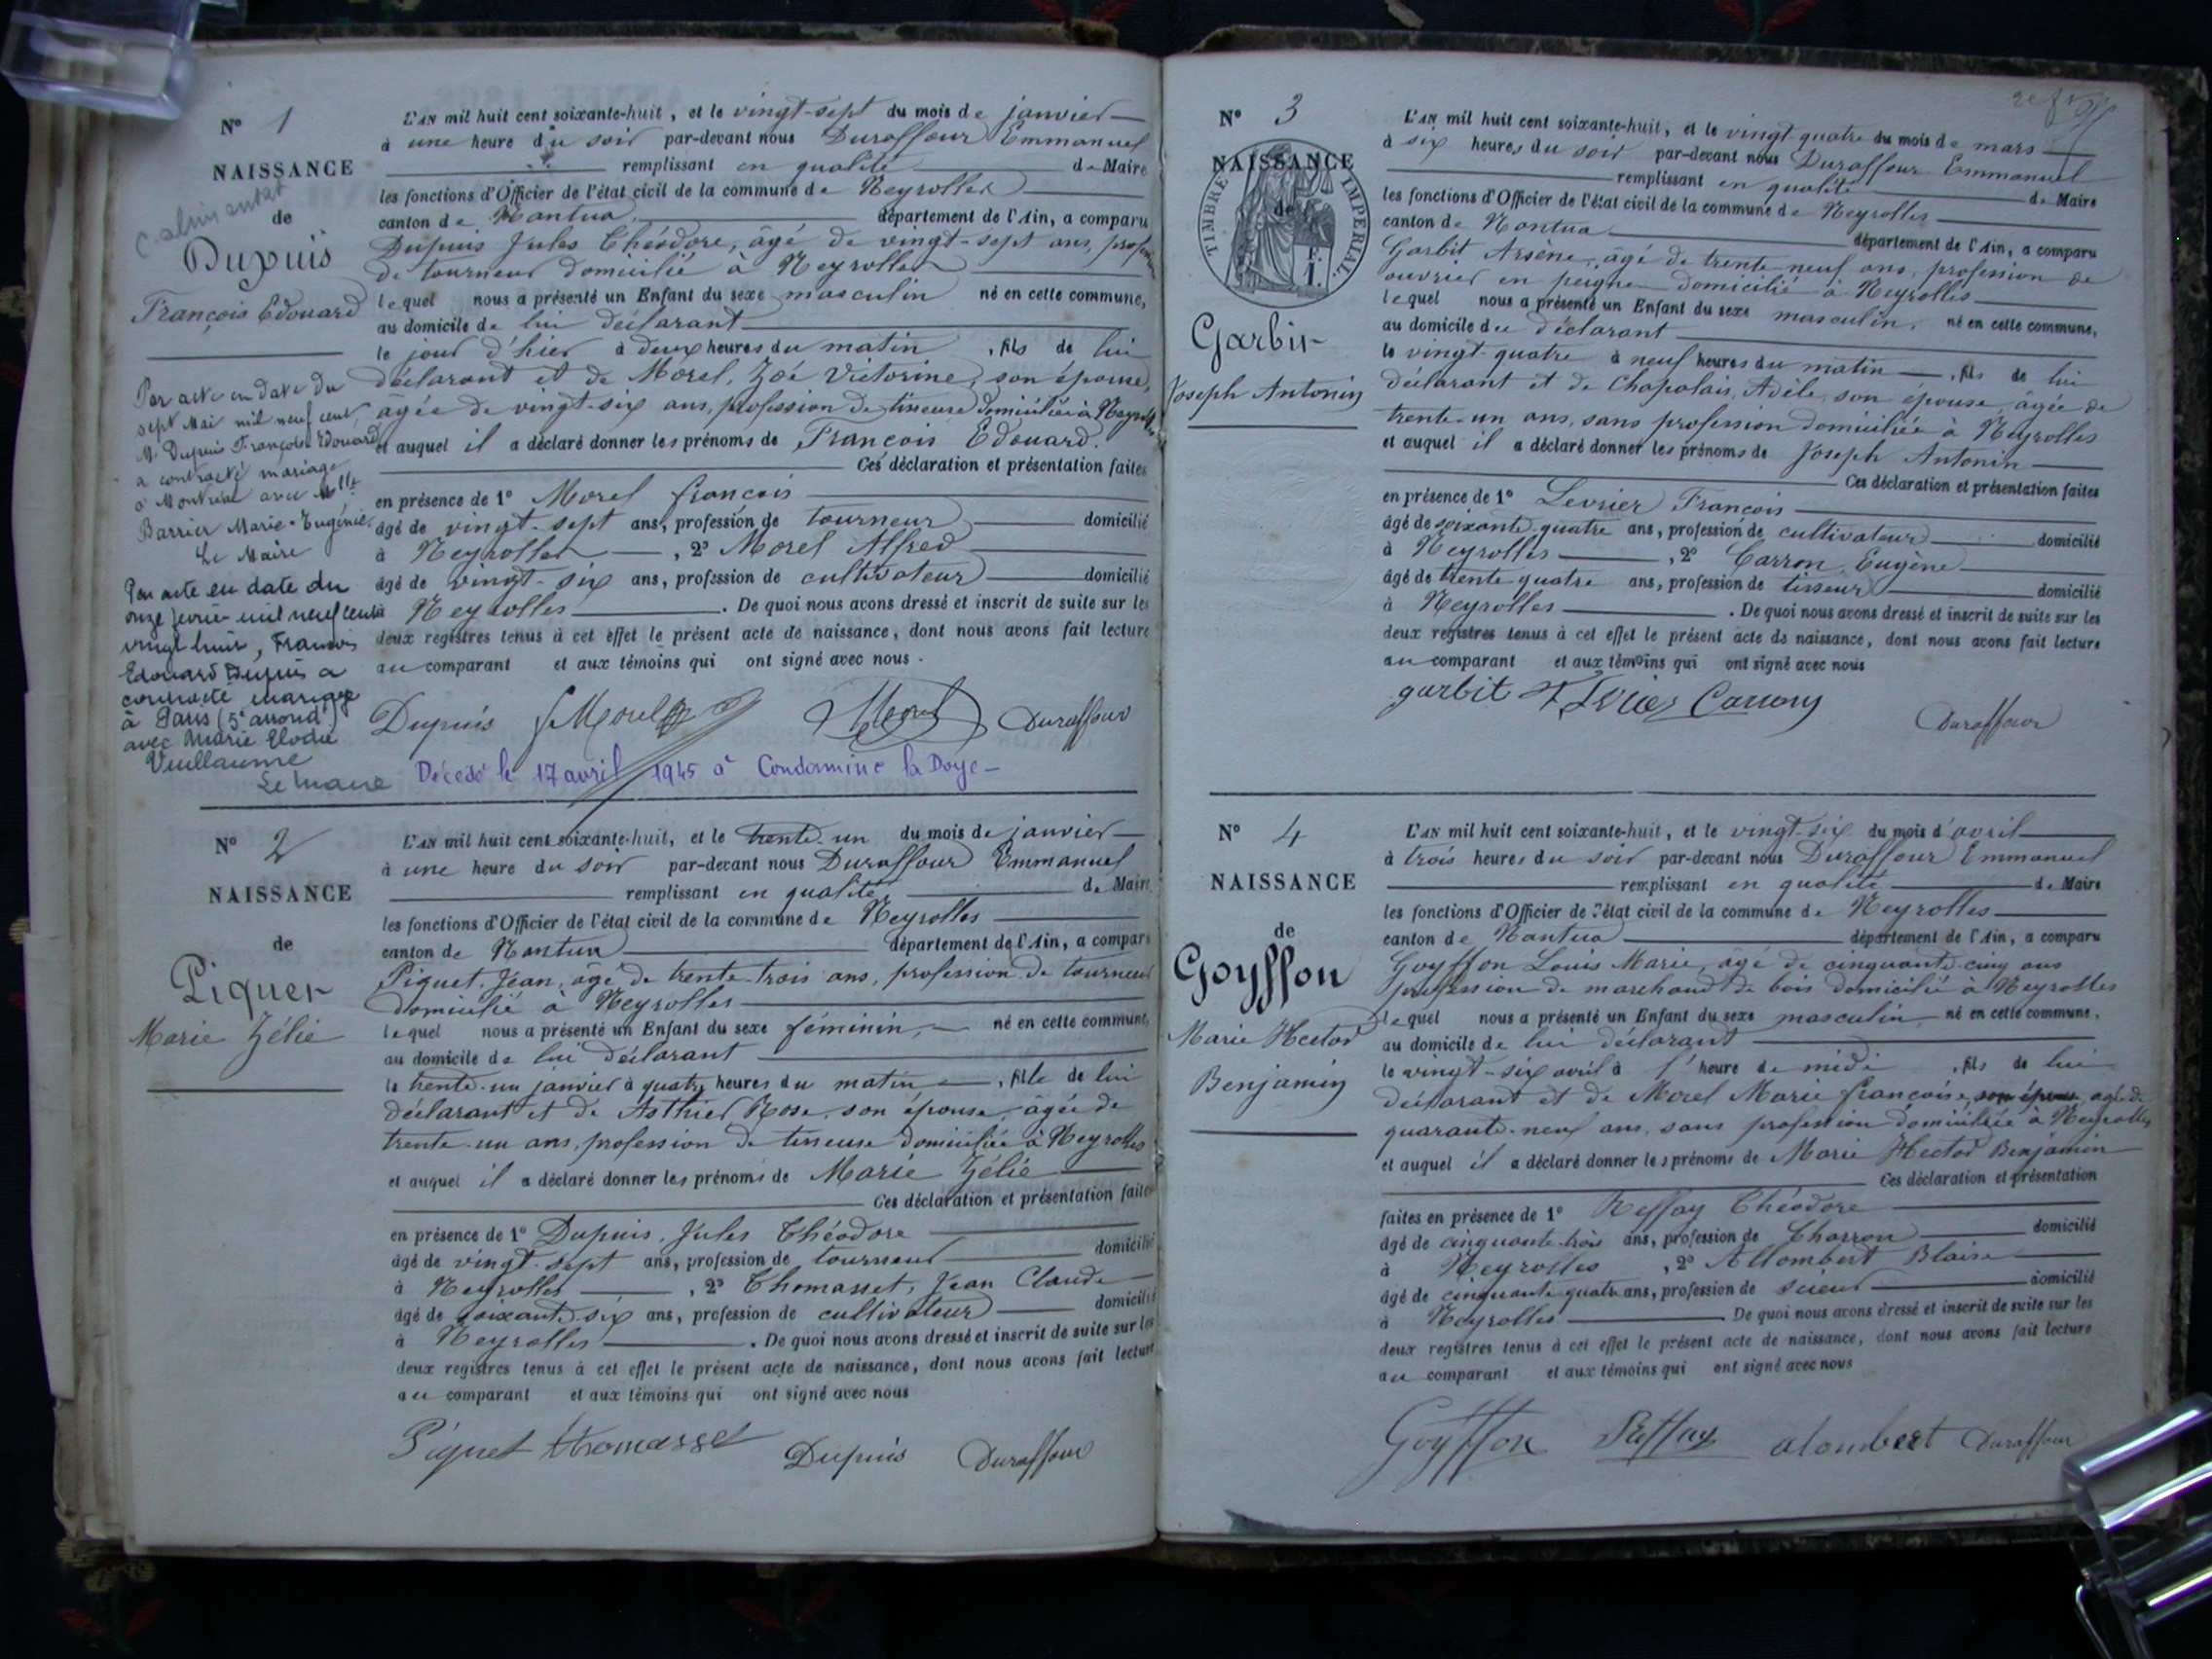 N° 1
NAISSANCE
de
Dupuis
François Edouard
Par acte en date du
sept Mai mil neuf cent
M. Dupuis François Edouard
a contracté mariage
à Montréal avec Mlle
Barrier Marie-Eugénie
Le Maire
Par acte en date du
onze février mil neuf cent
vingt huit, François
Edouard Dupuis a
contracté mariage
à Paris (5e arrond.)
avec Marie Elodie
Vuillaume
Le Maire
L'AN mil huit cent soixante-huit, et le vingt-sept du mois de janvier
à une heure du soir par-devant nous Duraffour Emmanuel
remplissant en qualité de Maire
les fonctions d'Officier de l'état civil de la commune de Neyrolles
canton de Nantua département de l'Ain, a comparu
Dupuis Jules Théodore, âgé de vingt-sept ans, profession
de tourneur domicilié à Neyrolles
lequel nous a présenté un Enfant du sexe masculin né en cette commune,
au domicile de lui déclarant
le jour d'hier à deux heures du matin, fils de lui
déclarant et de Morel, Zoé Victorine, son épouse,
âgée de vingt-six ans, profession de tisseuse domiciliée à Neyrolles
et auquel il a déclaré donner les prénoms de François Edouard.
Ces déclaration et présentation faites
en présence de 1° Morel françois
âgé de vingt-sept ans, profession de tourneur domicilié
à Neyrolles, 2° Morel Alfred
âgé de vingt-six ans, profession de cultivateur domicilié
à Neyrolles. De quoi nous avons dressé et inscrit de suite sur les
deux registres tenus à cet effet le présent acte de naissance, dont nous avons fait lecture
au comparant et aux témoins qui ont signé avec nous.
Dupuis f Morel Morel Duraffour
Décédé le 17 avril 1945 à Condamine la Doye
N° 2
NAISSANCE
de
Piquet
Marie Zélie
L'AN mil huit cent soixante-huit, et le trente-un du mois de janvier
à une heure du soir par-devant nous Duraffour Emmanuel
remplissant en qualité de Maire
les fonctions d'Officier de l'état civil de la commune de Neyrolles
canton de Nantua département de l'Ain, a comparu
Piquet, Jean, âgé de trente-trois ans, profession de tourneur
domicilié à Neyrolles
lequel nous a présenté un Enfant du sexe féminin, né en cette commune,
au domicile de lui déclarant
le trente-un janvier à quatre heures du matin, fille de lui
déclarant et de Asthier Rose, son épouse, âgée de
trente-un ans, profession de tisseuse domiciliée à Neyrolles
et auquel il a déclaré donner les prénoms de Marie Zélie
Ces déclaration et présentation faites
en présence de 1° Dupuis, Jules Théodore
âgé de vingt-sept ans, profession de tourneur domicilié
à Neyrolles, 2° Thomasset, Jean Claude
âgé de soixante-six ans, profession de cultivateur domicilié
à Neyrolles. De quoi nous avons dressé et inscrit de suite sur les
deux registres tenus à cet effet le présent acte de naissance, dont nous avons fait lecture
au comparant et aux témoins qui ont signé avec nous
Piquet thomasset Dupuis Duraffour
N° 3
NAISSANCE
de
TIMBRE IMPERIAL
1 F.
Garbit
Joseph Antonin
L'AN mil huit cent soixante-huit, et le vingt-quatre du mois de mars
à six heures du soir par-devant nous Duraffour Emmanuel
remplissant en qualité de Maire
les fonctions d'Officier de l'état civil de la commune de Neyrolles
canton de Nantua département de l'Ain, a comparu
Garbit Arsène, âgé de trente-neuf ans, profession de
ouvrier en peigne domicilié à Neyrolles
lequel nous a présenté un Enfant du sexe masculin, né en cette commune,
au domicile du déclarant
le vingt-quatre à neuf heures du matin, fils de lui
déclarant et de Chapolais, Adèle, son épouse, âgée de
trente-un ans, sans profession domiciliée à Neyrolles
et auquel il a déclaré donner les prénoms de Joseph Antonin
Ces déclaration et présentation faites
en présence de 1° Levrier François
âgé de soixante-quatre ans, profession de cultivateur domicilié
à Neyrolles, 2° Carron, Eugène
âgé de trente-quatre ans, profession de tisseur domicilié
à Neyrolles. De quoi nous avons dressé et inscrit de suite sur les
deux registres tenus à cet effet le présent acte de naissance, dont nous avons fait lecture
au comparant et aux témoins qui ont signé avec nous
garbit Carrony Duraffour
N° 4
NAISSANCE
de
Goyffon
Marie Hector
Benjamin
L'AN mil huit cent soixante-huit, et le vingt-six du mois d'avril
à trois heures du soir par-devant nous Duraffour Emmanuel
remplissant en qualité de Maire
les fonctions d'Officier de l'état civil de la commune de Neyrolles
canton de Nantua département de l'Ain, a comparu
Goyffon Louis Marie, âgé de cinquante-cinq ans
profession de marchand de bois domicilié à Neyrolles
lequel nous a présenté un Enfant du sexe masculin, né en cette commune,
au domicile de lui déclarant
le vingt-six avril à l'heure de midi, fils de lui
déclarant et de Morel Marie françoise, son épouse, âgée de
quarante-neuf ans, sans profession domiciliée à Neyrolles
et auquel il a déclaré donner les prénoms de Marie Hector Benjamin
Ces déclaration et présentation
faites en présence de 1° Reffay Théodore
âgé de cinquante-trois ans, profession de Charron domicilié
à Neyrolles, 2° Allombert Blaise
âgé de cinquante-quatre ans, profession de sieur domicilié
à Neyrolles De quoi nous avons dressé et inscrit de suite sur les
deux registres tenus à cet effet le présent acte de naissance, dont nous avons fait lecture
au comparant et aux témoins qui ont signé avec nous
Goyffon Reffay alombert Duraffour